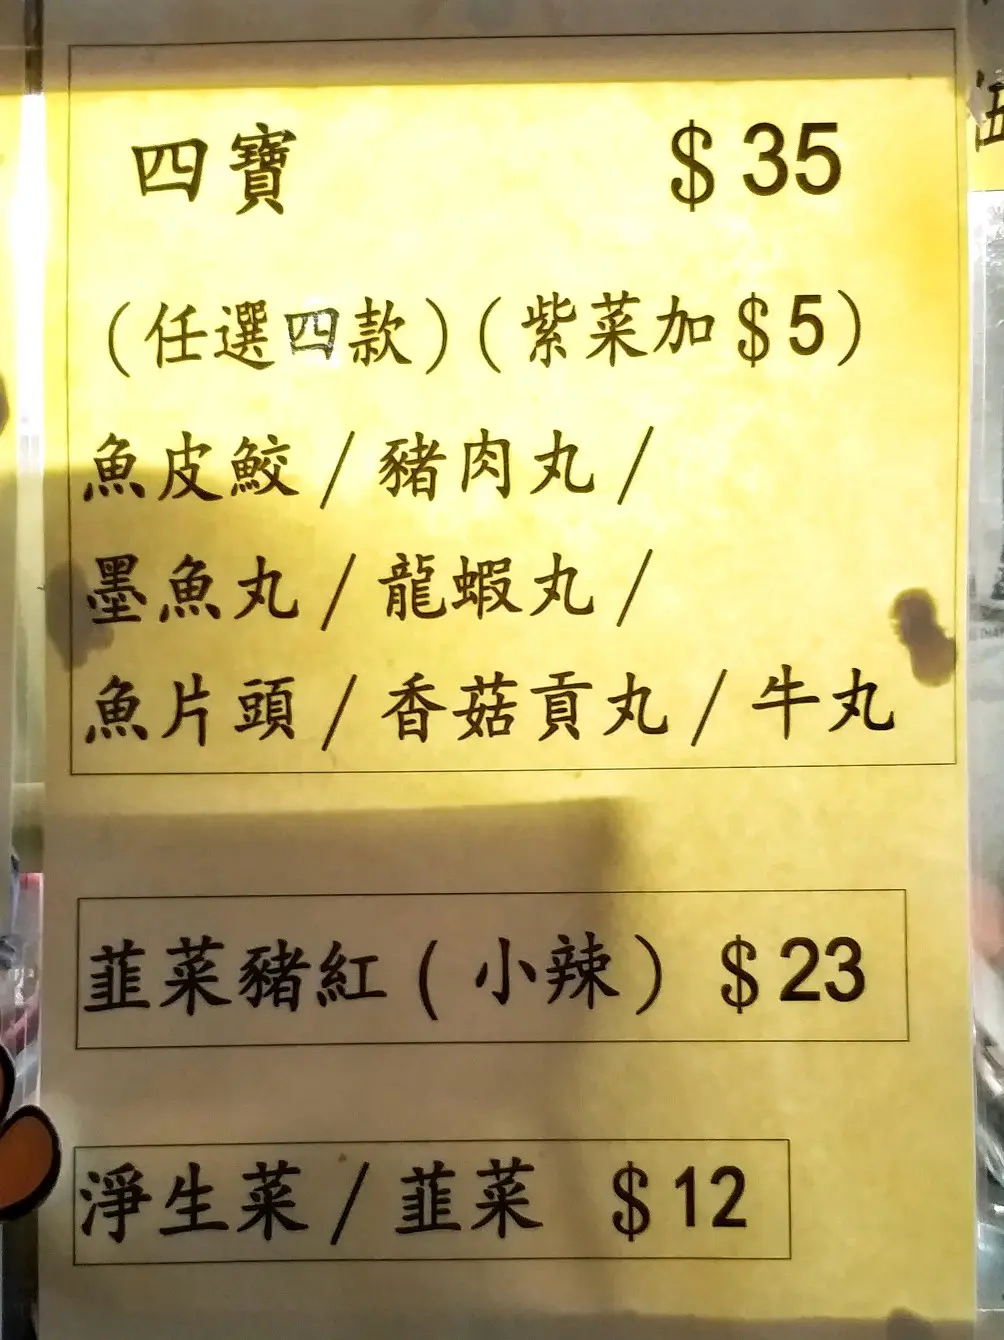 四寶 $35
(任選四款)(紫菜加$5)
魚皮鮫/豬肉丸/
墨魚丸/龍蝦丸/
魚片頭/香菇貢丸/牛丸
韮菜豬紅(小辣) $23
淨生菜/韮菜 $12